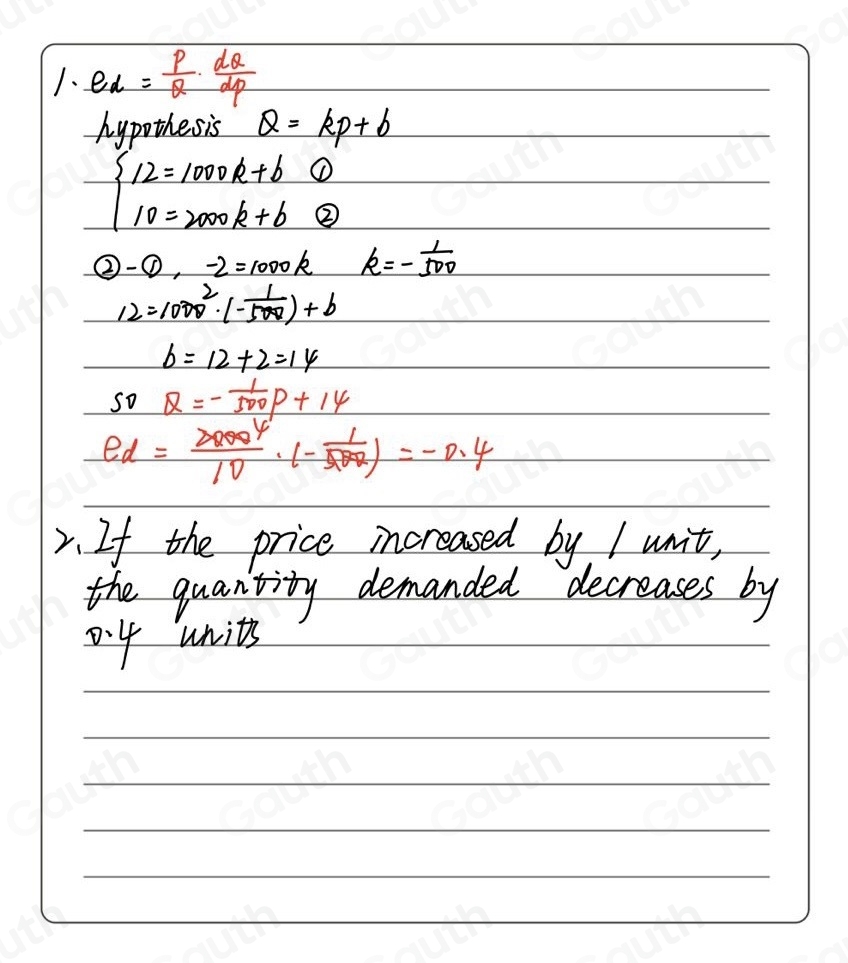 1. ed = P/Q · dQ/dp
hypothesis Q = kp + b
{ 12 = 1000k + b ①
10 = 2000k + b ②
② - ①, -2 = 1000k k = - 1/500
12 = 1000² · (- 1/500) + b
b = 12 + 2 = 14
so Q = - 1/500 P + 14
ed = 2000⁴/10 · (- 1/500) = - 0.4
2. If the price increased by 1 unit,
the quantity demanded decreases by
0.4 units
Gauth